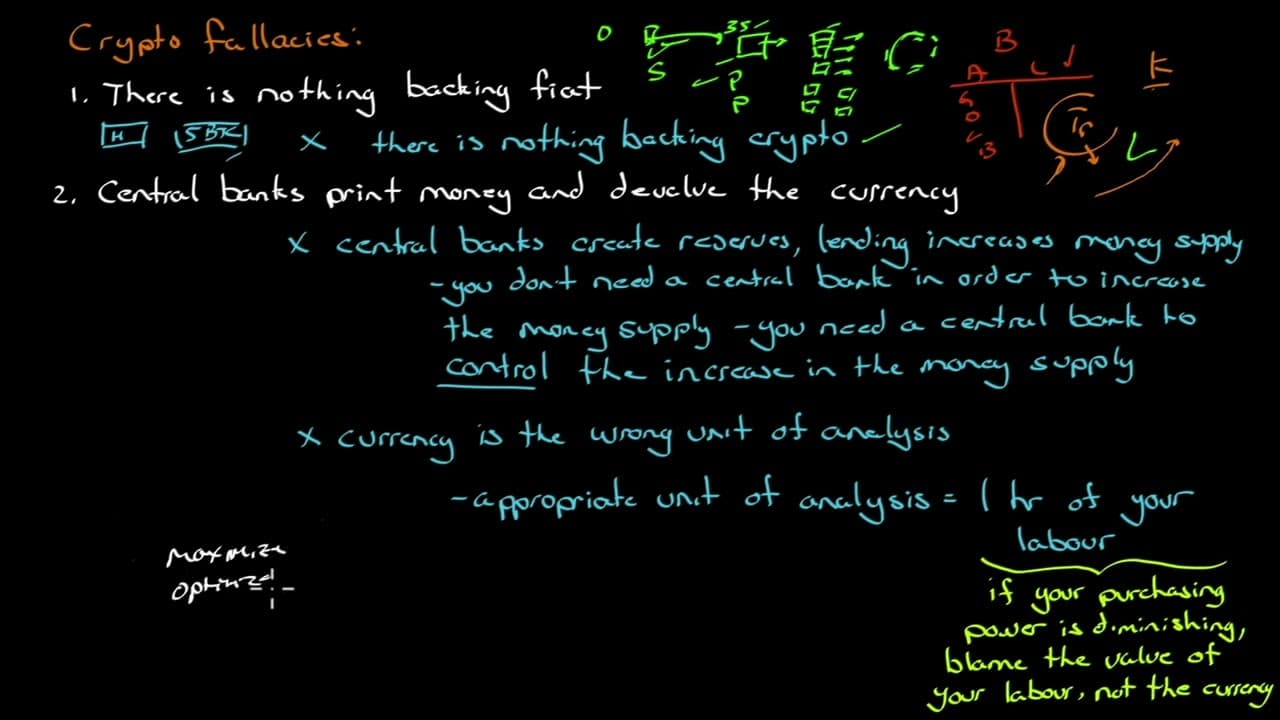 Crypto fallacies:
1. There is nothing backing fiat
H 5 BTC X there is nothing backing crypto
2. Central banks print money and devalue the currency
X central banks create reserves, lending increases money supply
- you don't need a central bank in order to increase
the money supply - you need a central bank to
control the increase in the money supply
X currency is the wrong unit of analysis
- appropriate unit of analysis = 1 hr of your
labour
if your purchasing
power is diminishing,
blame the value of
your labour, not the currency
maximize
optimize
O R 35
S P
P
B
A L
K
G
O
B
Tr
L